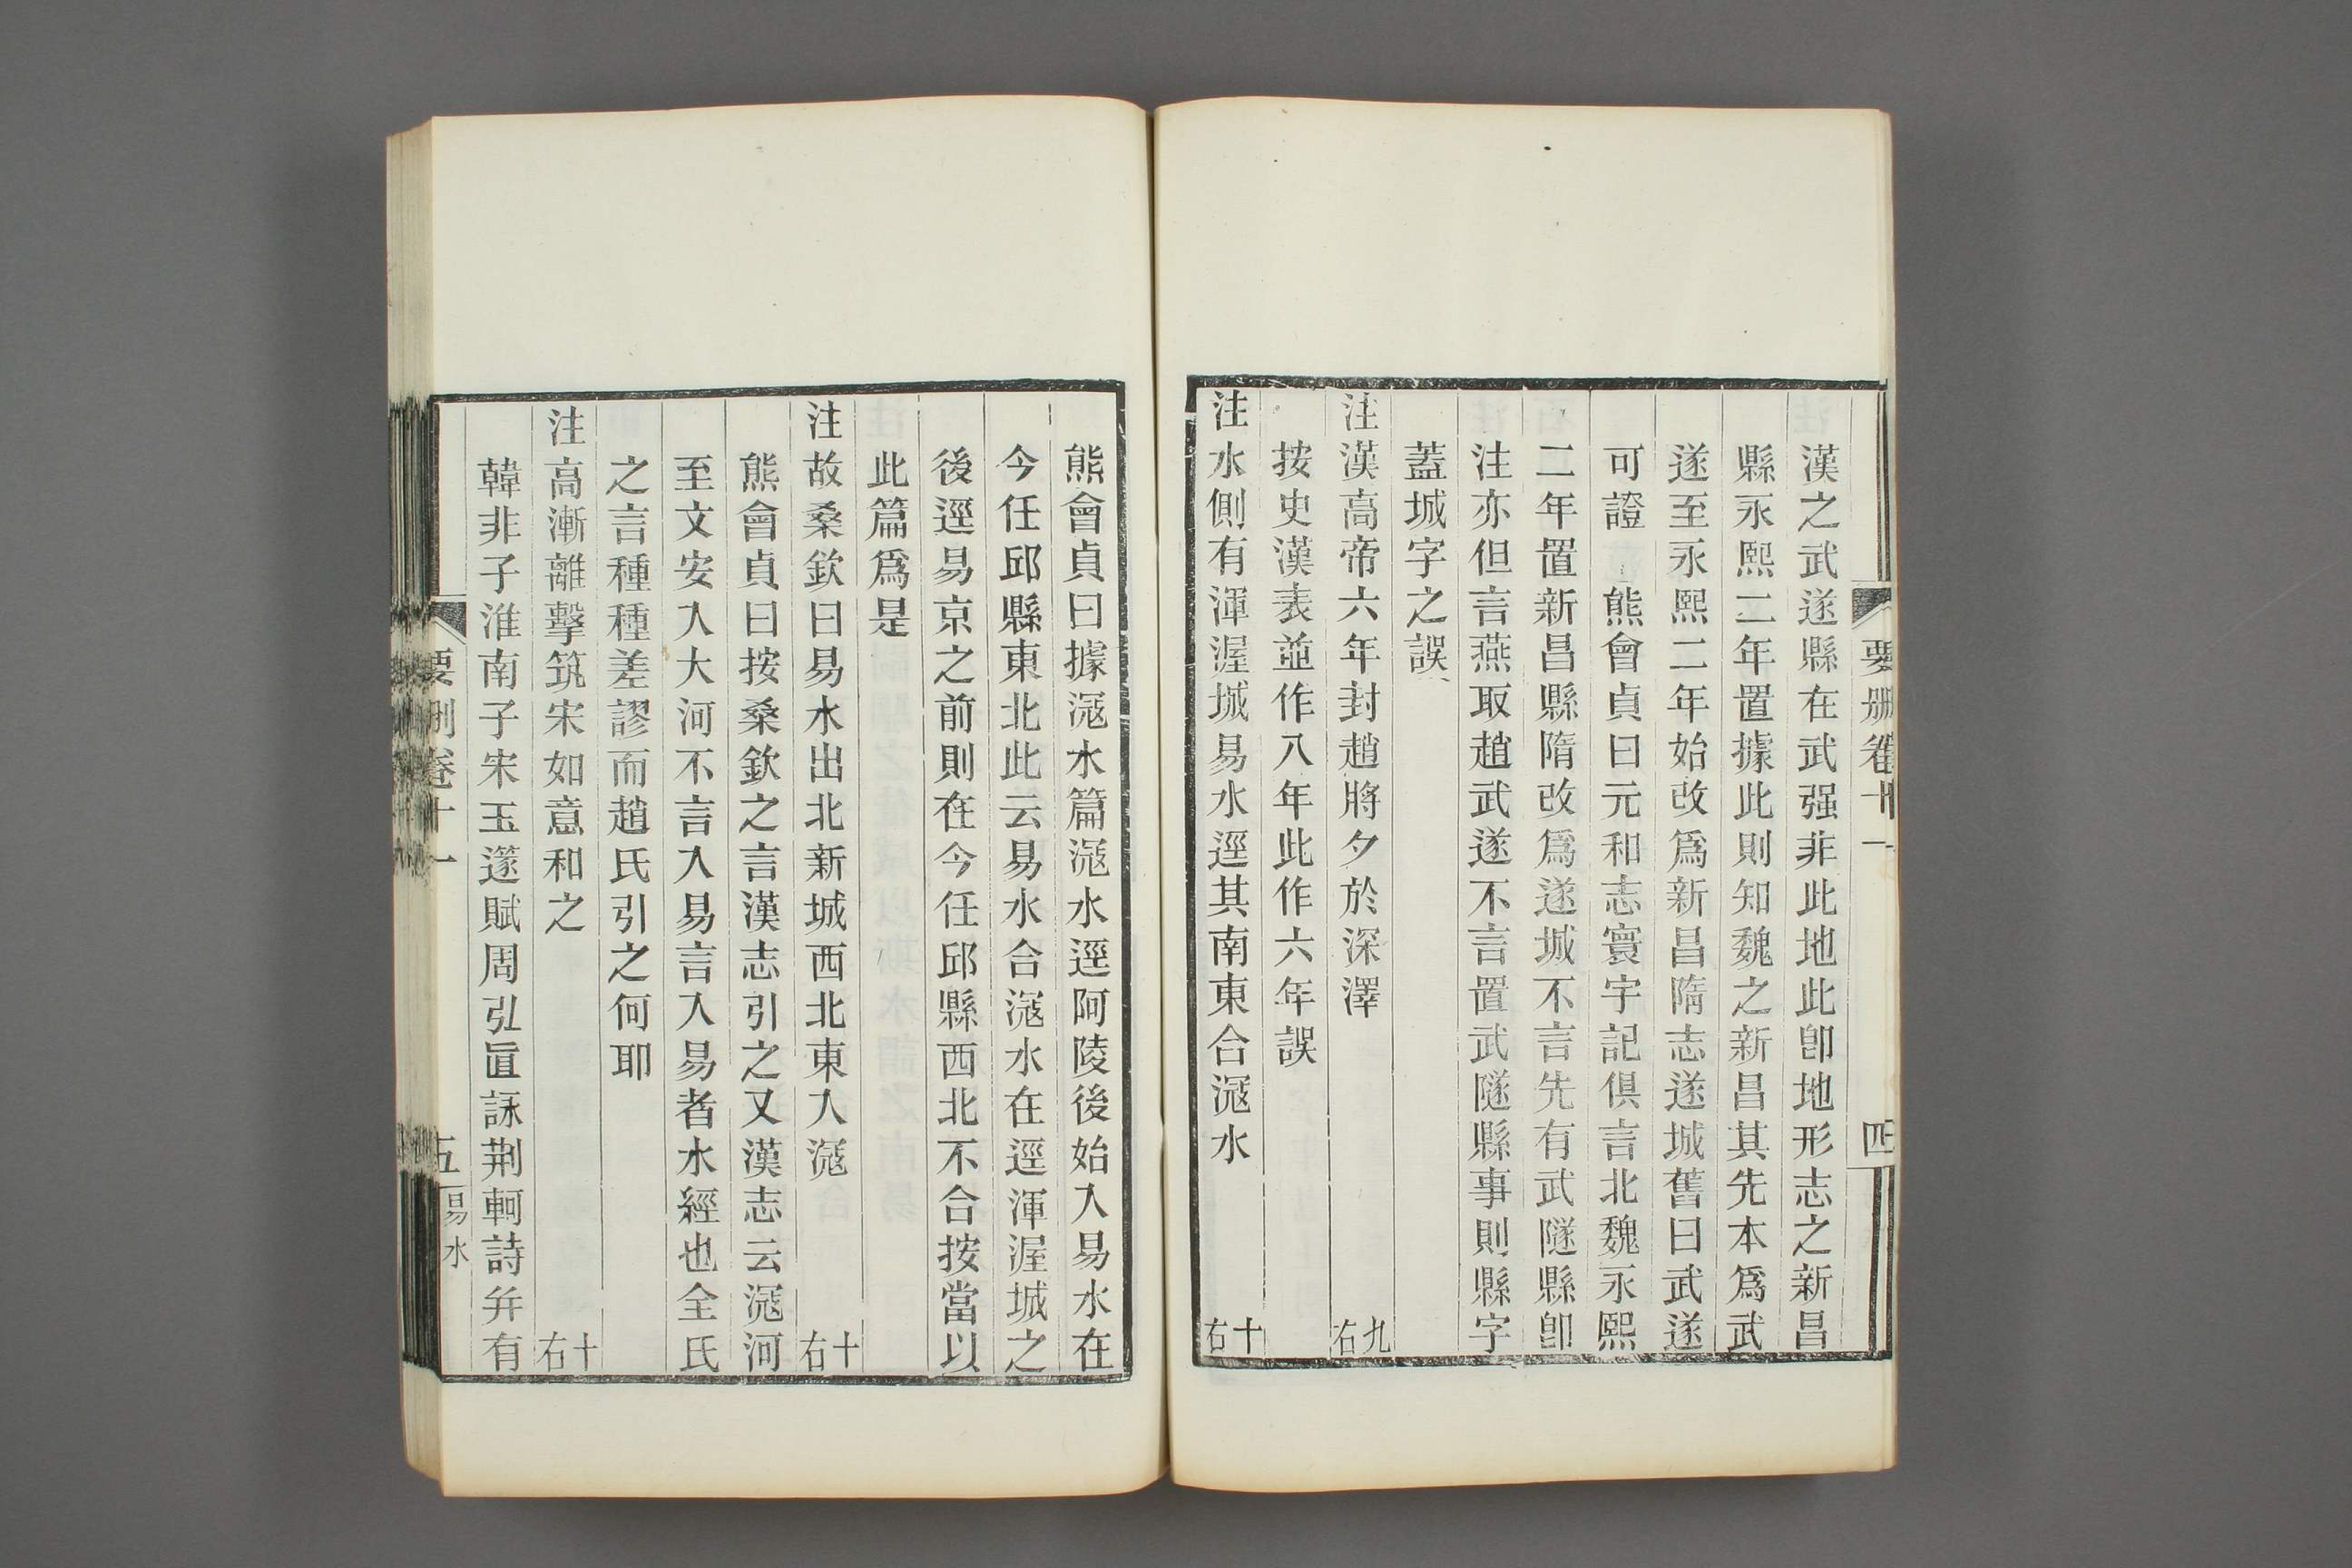 要刪卷十一
四
漢之武遂縣在武强非此地此卽地形志之新昌
縣永熙二年置據此則知魏之新昌其先本爲武
遂至永熙二年始改爲新昌隋志遂城舊曰武遂
可證 熊會貞曰元和志寰宇記俱言北魏永熙
二年置新昌縣隋改爲遂城不言先有武隧縣卽
注亦但言燕取趙武遂不言置武隧縣事則縣字
蓋城字之誤
注漢高帝六年封趙將夕於深澤 九右
按史漢表並作八年此作六年誤
注水側有渾渥城易水逕其南東合滱水 十右
熊會貞曰據滱水篇滱水逕阿陵後始入易水在
今任邱縣東北此云易水合滱水在逕渾渥城之
後逕易京之前則在今任邱縣西北不合按當以
此篇爲是
注故桑欽曰易水出北新城西北東入滱 十右
熊會貞曰按桑欽之言漢志引之又漢志云滱河
至文安入大河不言入易言入易者水經也全氏
之言種種差謬而趙氏引之何耶
注高漸離擊筑宋如意和之 十右
韓非子淮南子宋玉邃賦周弘直詠荆軻詩幷有
要刪卷十一
五
易水